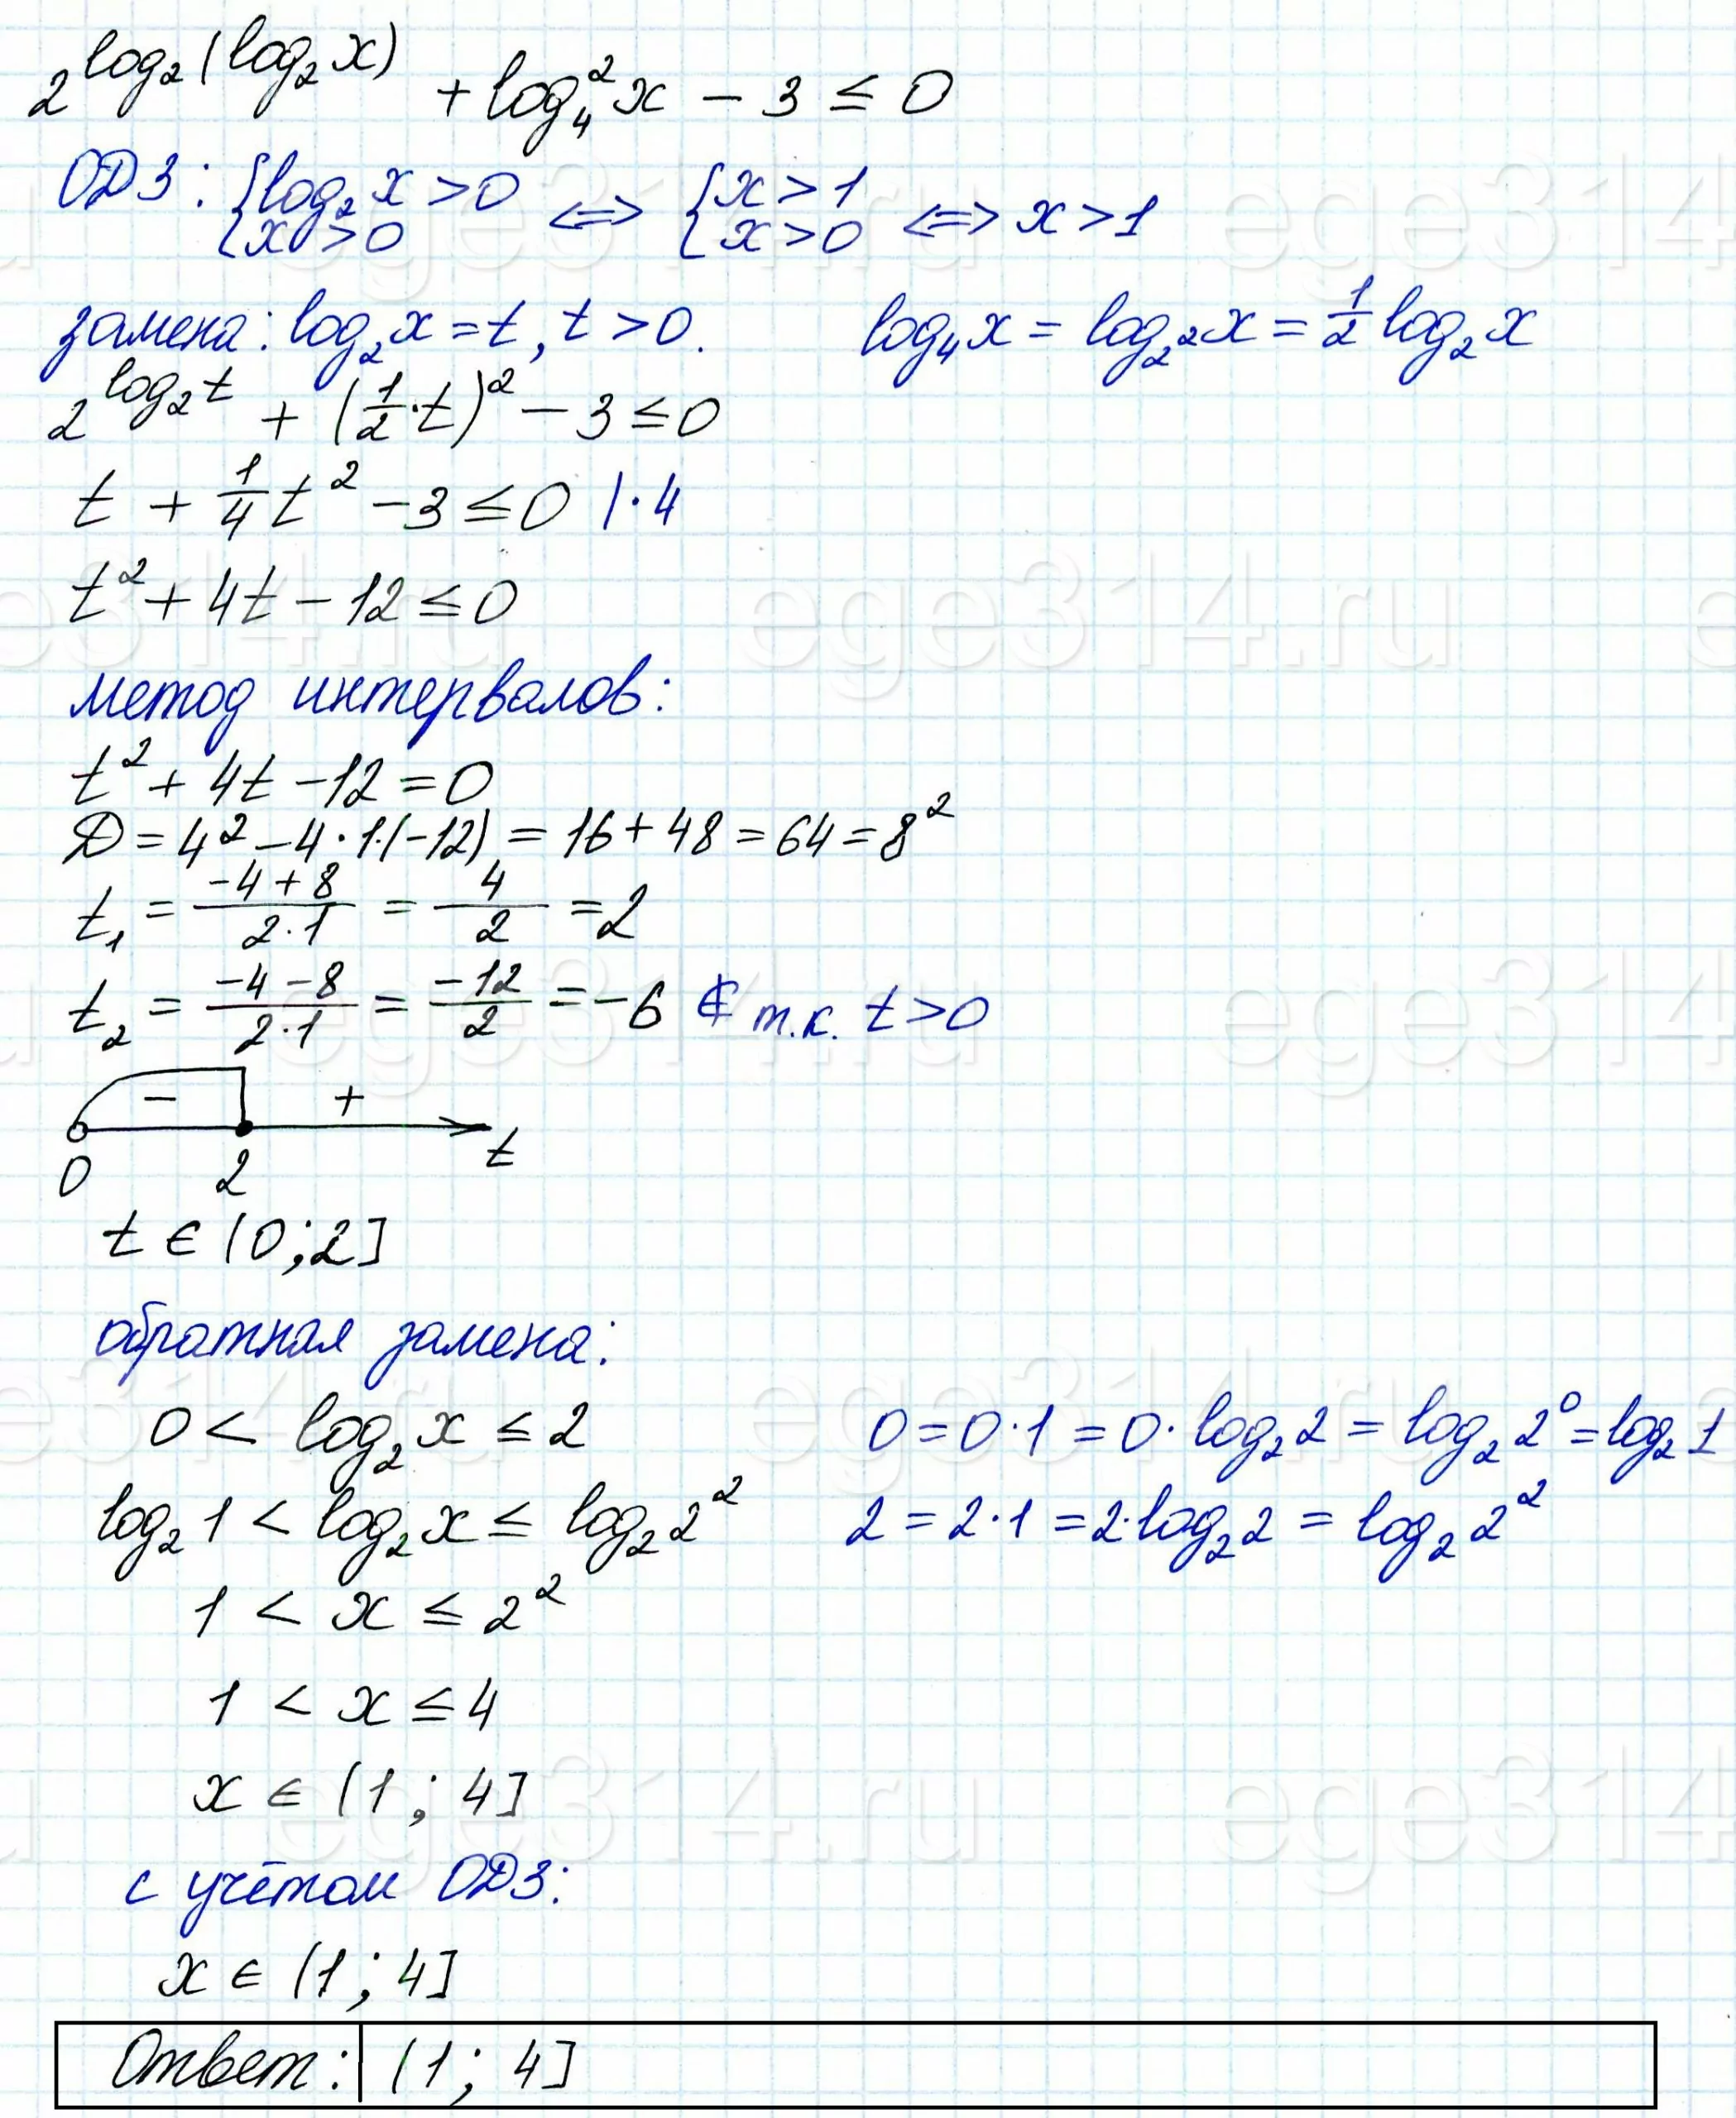 2^(log₂(log₂x)) + log₄²x − 3 ≤ 0
ОДЗ: {log₂x > 0 ; x > 0 ⇔ {x > 1 ; x > 0 ⇔ x > 1
замена: log₂x = t, t > 0. log₄x = log_(2²)x = 1/2 log₂x
2^(log₂t) + (1/2·t)² − 3 ≤ 0
t + 1/4 t² − 3 ≤ 0 |·4
t² + 4t − 12 ≤ 0
метод интервалов:
t² + 4t − 12 = 0
D = 4² − 4·1·(−12) = 16 + 48 = 64 = 8²
t₁ = (−4+8)/(2·1) = 4/2 = 2
t₂ = (−4−8)/(2·1) = −12/2 = −6 ∉ т.к. t > 0
− +
0 2 t
t ∈ (0;2]
обратная замена:
0 < log₂x ≤ 2 0 = 0·1 = 0·log₂2 = log₂2⁰ = log₂1
log₂1 < log₂x ≤ log₂2² 2 = 2·1 = 2·log₂2 = log₂2²
1 < x ≤ 2²
1 < x ≤ 4
x ∈ (1; 4]
с учётом ОДЗ:
x ∈ (1; 4]
Ответ: (1; 4]
ege314.ru